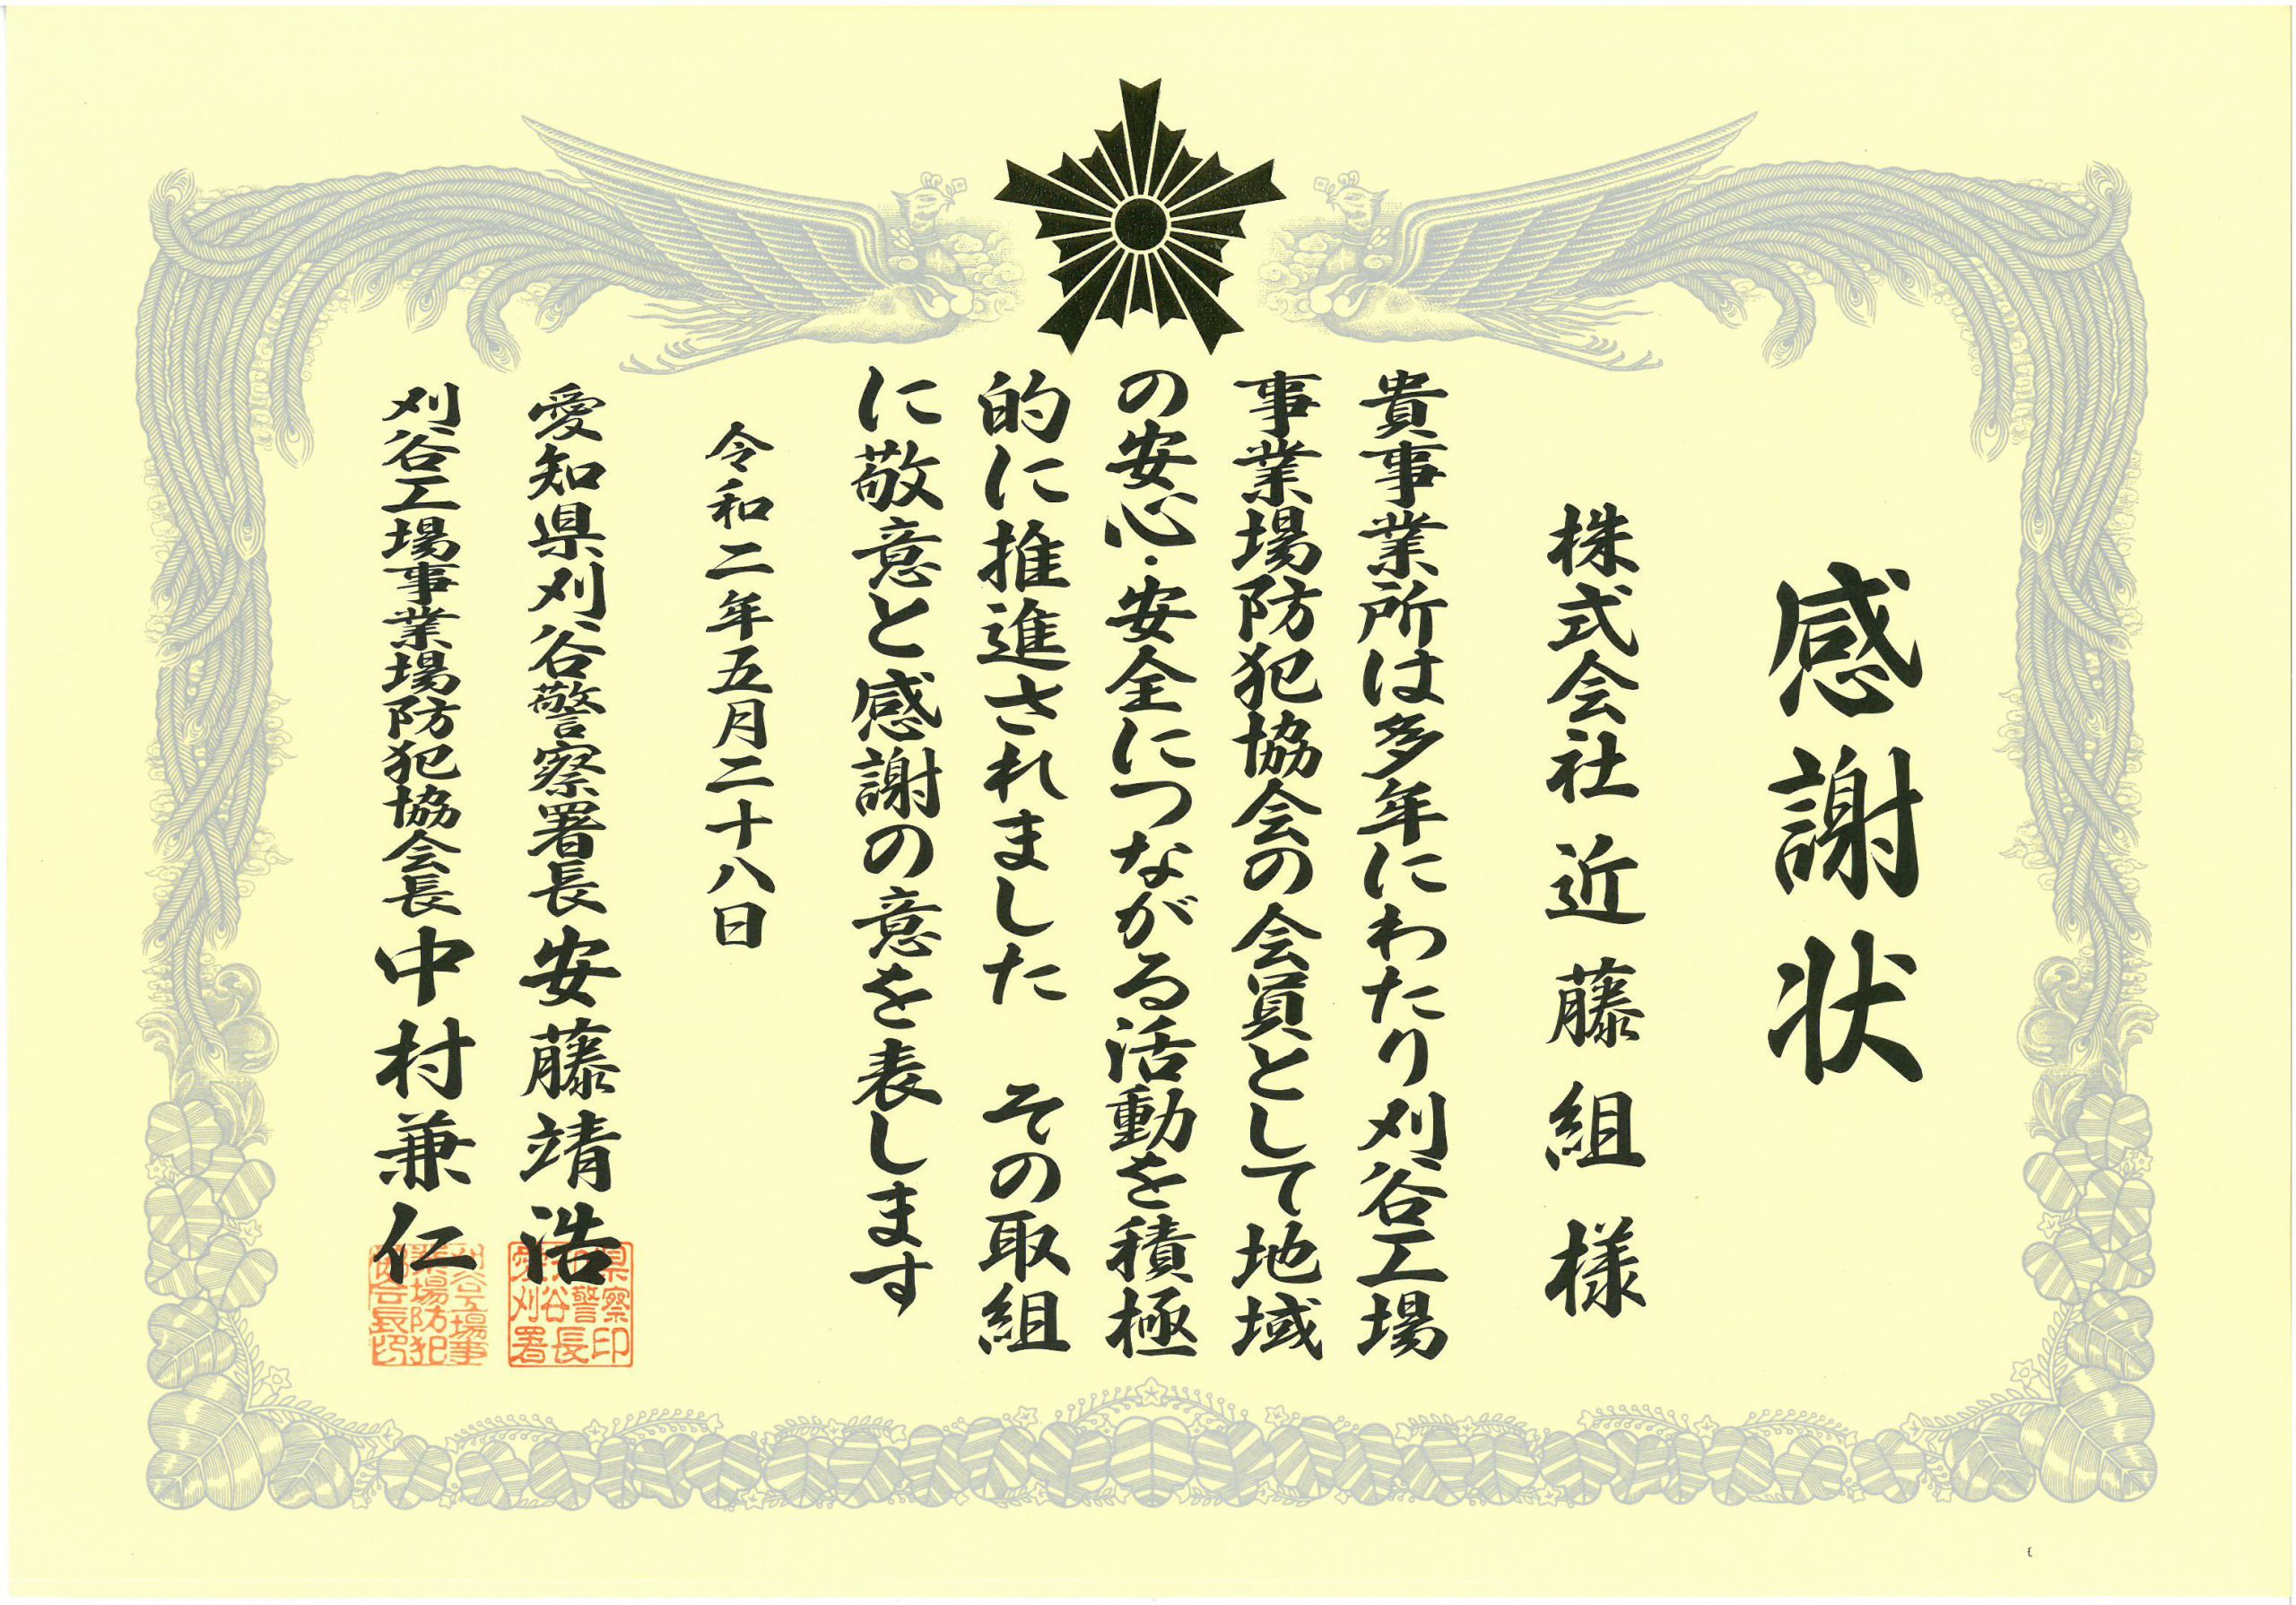 感謝状
株式会社 近藤組 様
貴事業所は多年にわたり刈谷工場
事業場防犯協会の会員として地域
の安心・安全につながる活動を積極
的に推進されました その取組
に敬意と感謝の意を表します
令和二年五月二十八日
愛知県刈谷警察署長 安藤靖浩
刈谷工場事業場防犯協会長 中村兼仁